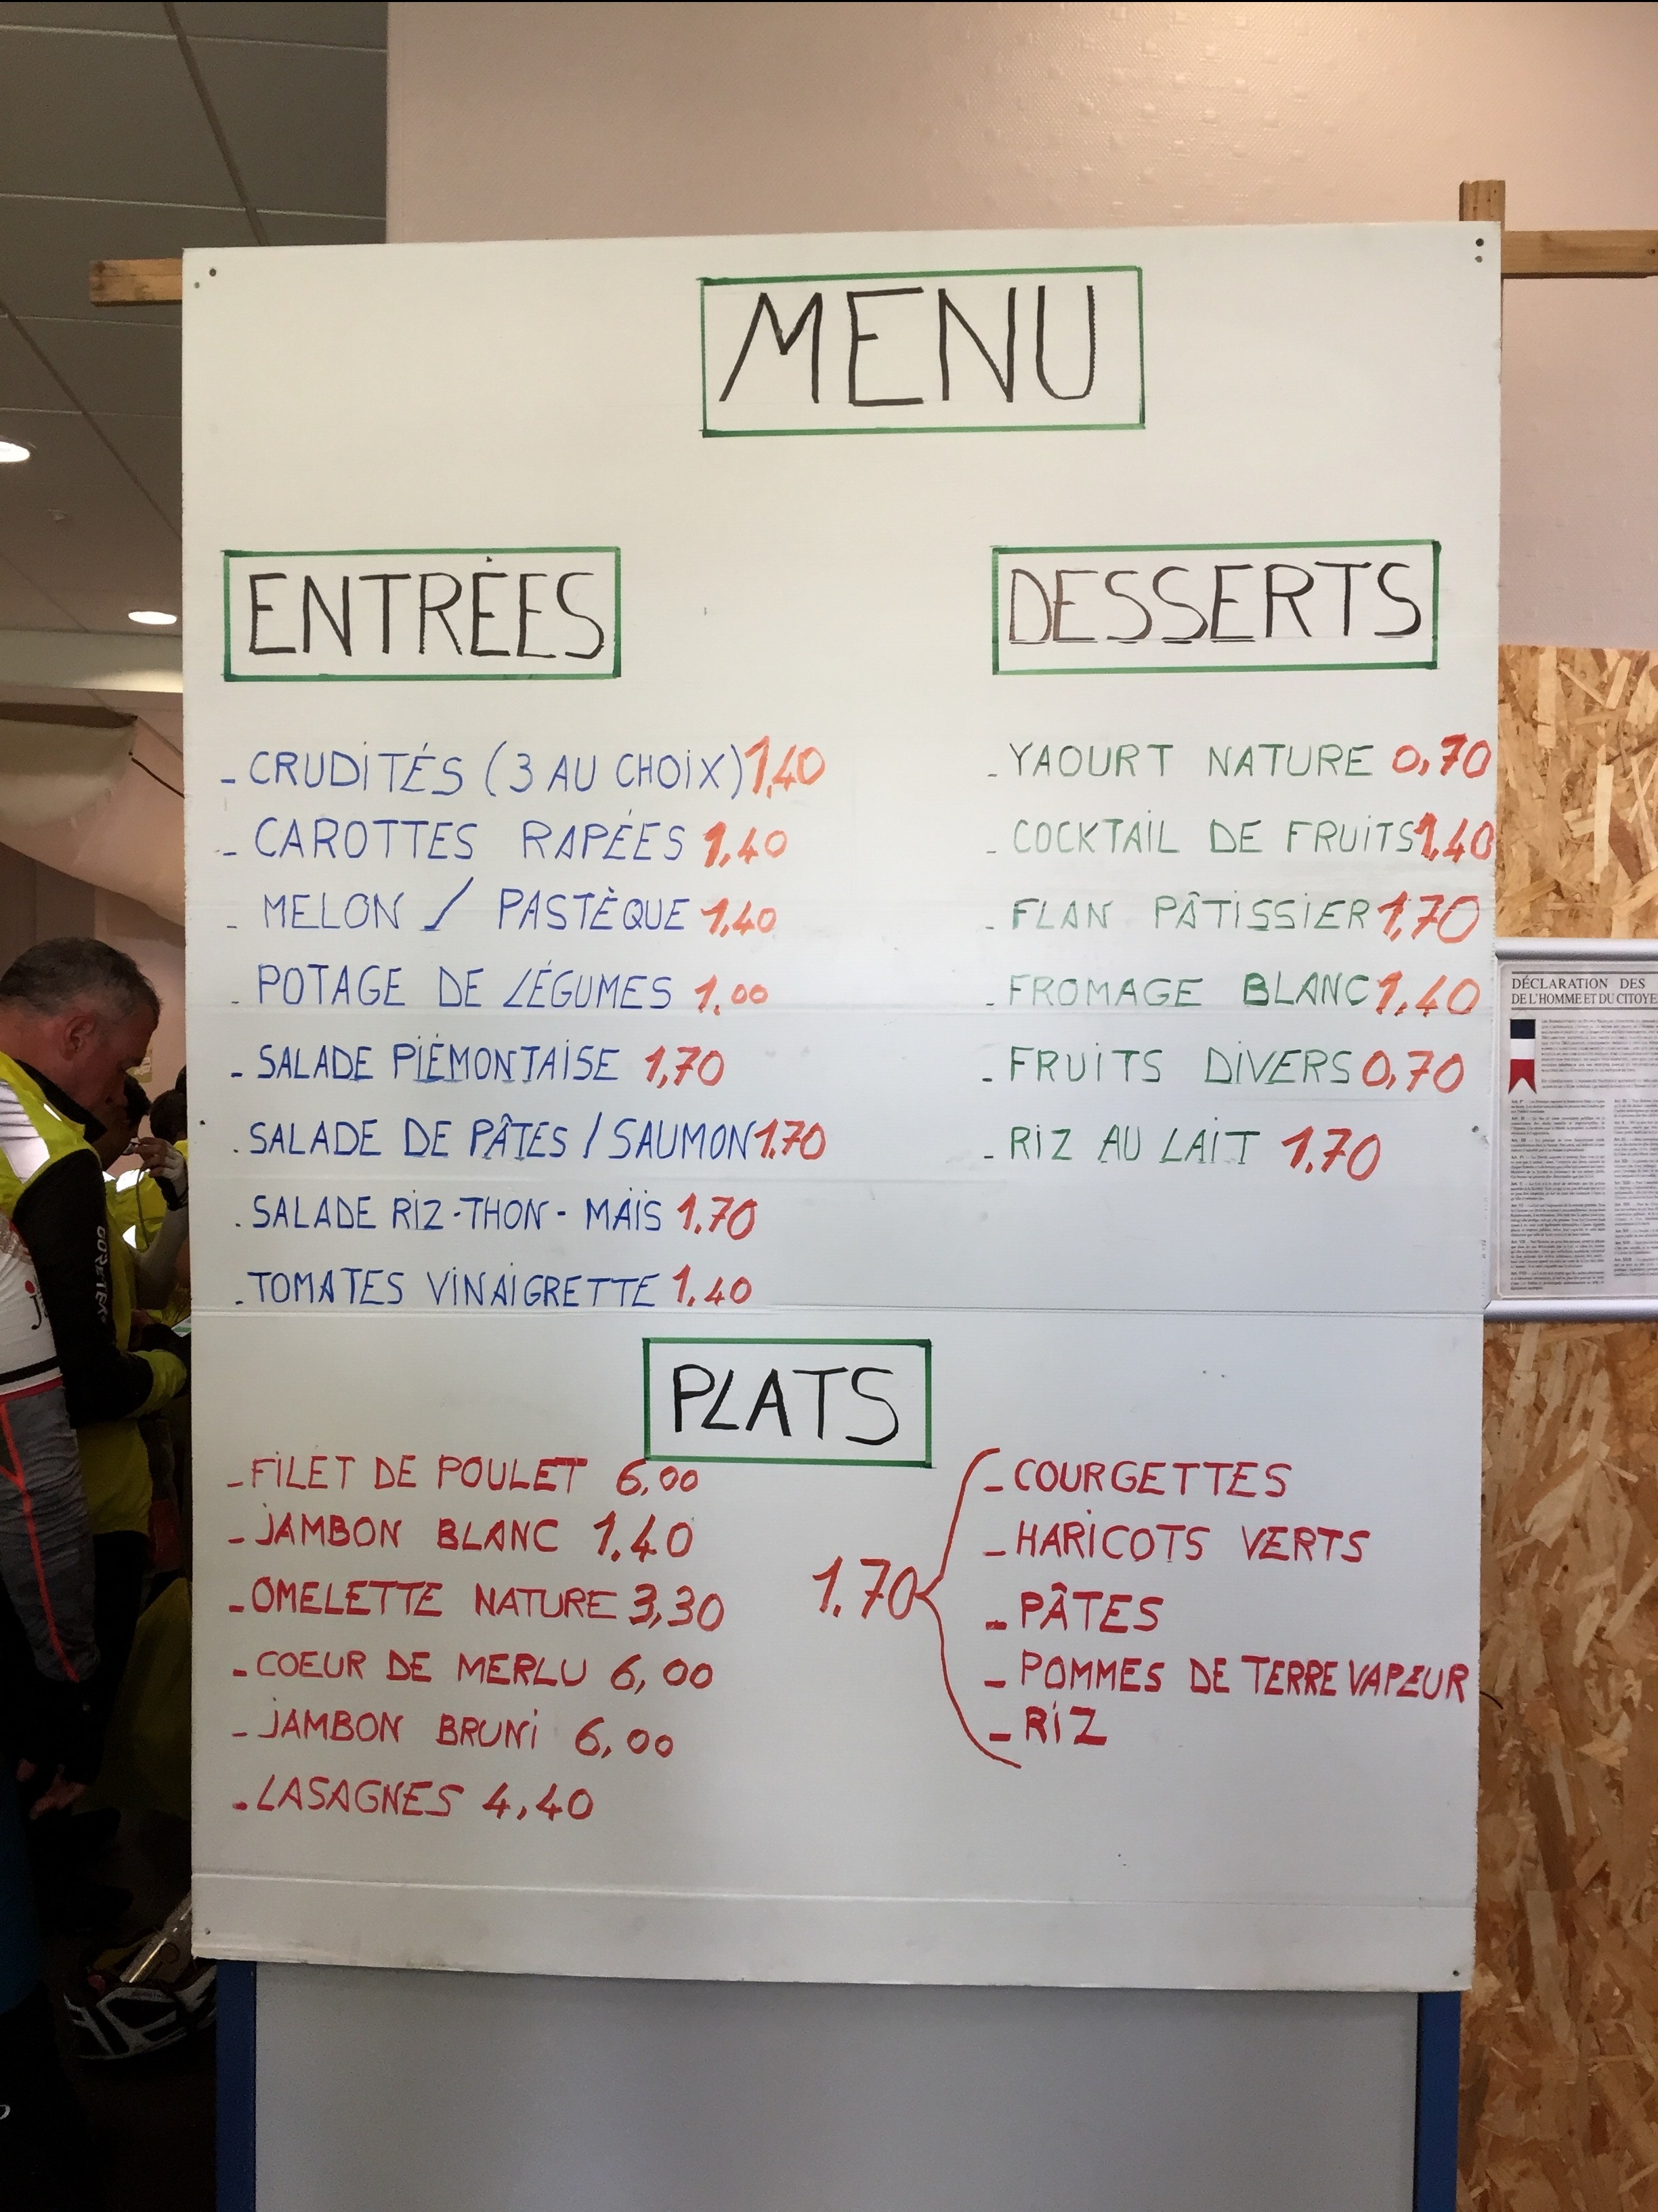 MENU
ENTRÉES
- CRUDITÉS (3 AU CHOIX) 1,40
- CAROTTES RAPÉES 1,40
- MELON / PASTÈQUE 1,40
- POTAGE DE LÉGUMES 1,00
- SALADE PIÉMONTAISE 1,70
- SALADE DE PÂTES / SAUMON 1.70
- SALADE RIZ-THON-MAÏS 1.70
- TOMATES VINAIGRETTE 1.40
DESSERTS
- YAOURT NATURE 0,70
- COCKTAIL DE FRUITS 1,40
- FLAN PÂTISSIER 1,70
- FROMAGE BLANC 1,40
- FRUITS DIVERS 0,70
- RIZ AU LAIT 1.70
PLATS
- FILET DE POULET 6,00
- JAMBON BLANC 1.40
- OMELETTE NATURE 3,30
- COEUR DE MERLU 6,00
- JAMBON BRUNI 6,00
- LASAGNES 4,40
1.70
- COURGETTES
- HARICOTS VERTS
- PÂTES
- POMMES DE TERRE VAPEUR
- RIZ
DÉCLARATION DES
DE L'HOMME ET DU CITOYE
GORETEX